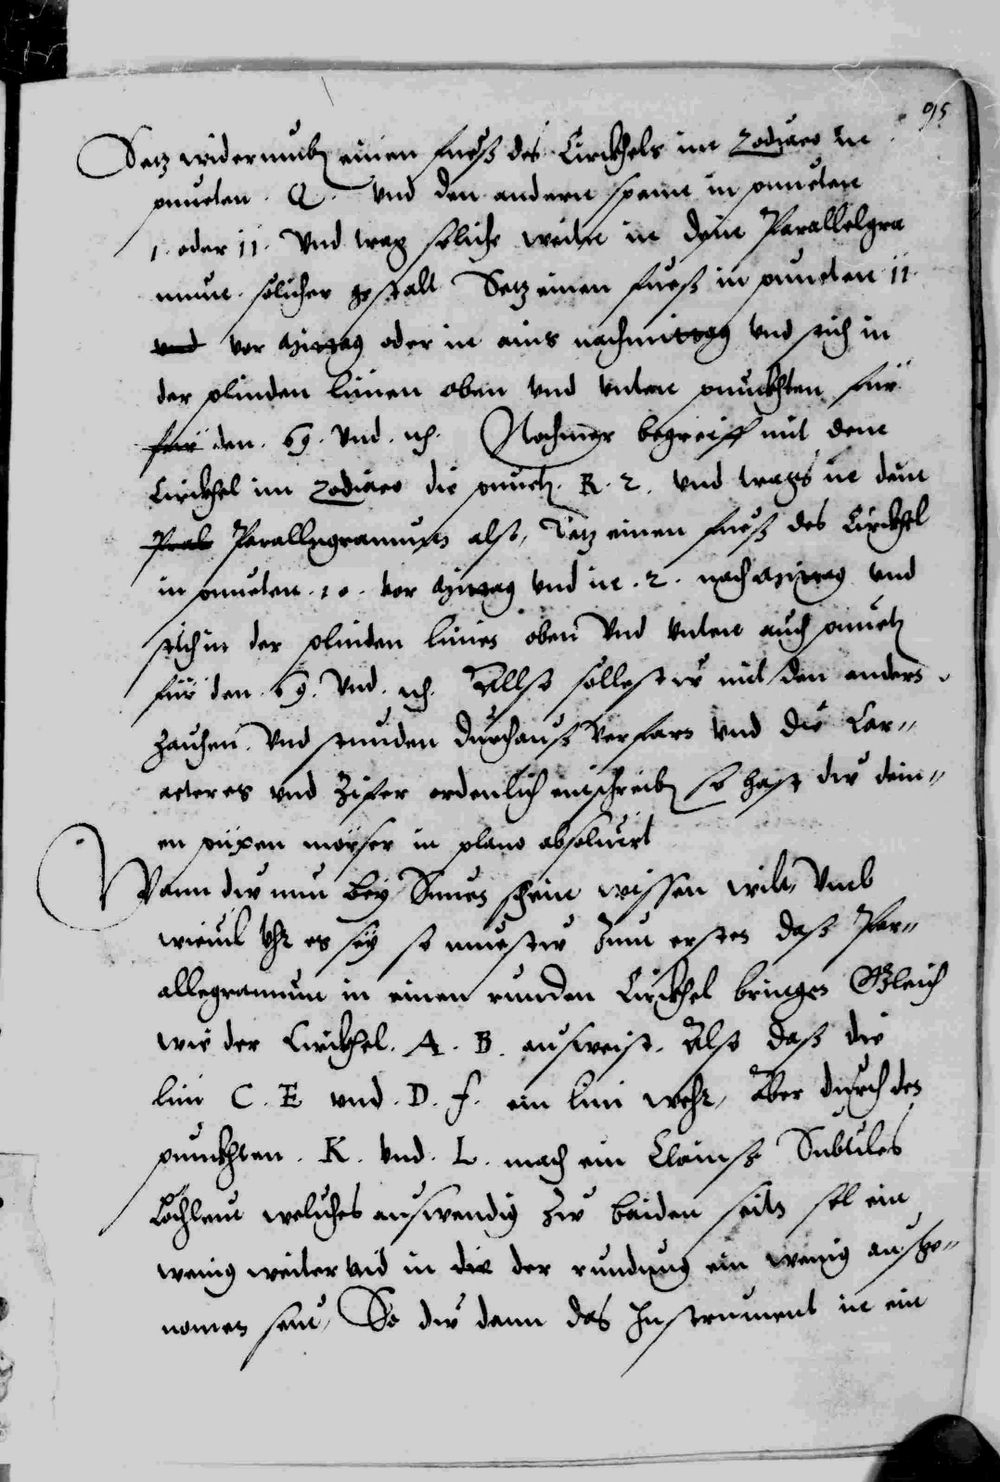 95
Setz widerumb einen fuesß des Circkhels im Zodiaco in
puncten . Q . Vnd den andern spann in puncten
1 . oder 11 . Vnd trag soliche weitte in dein Parallelgra
mum . solicher gestalt Setz einen fuesß in puncten 11 .
vnd vor Mittag oder in ains nachmittag vnd stich in
der plinden linien oben vnd vnten punckhten für
für den . ♋ . Vnd . ♏ . Nachmer begreiff mit dem
Circkhel im Zodiaco die punct . R . 2 . vnd trags in dein
Paral Parallegramum also, Setz einen fuesß des Circkhel
in puncten . 10 . vor Mittag vnd in . 2 . nach Mittag vnd
stich in der plinden linien oben Vnd vnten auch punct
für den . ♋ . Vnd . ♏ . Allso sollestu mit den andern
Zaichen . Vnd stunden durchauß verfarn vnd die Car„
acteres vnd Zifer ordenlich einschreib so hast du dein„
en püxen mörser in plano absoluirt
Wann du nun bey Sunen schein wissen wilt, Vmb
wieuil Vhr es sey so muestu Zum ersten daß Par„
allegramum in einen runden Circkhel bringen Gleich
wie der Circkhel . A . B . ausweist . Also daß die
lini C . E vnd . D . F . ein lini wehr, Aber durch den
punckhten . K . vnd . L . mach ein Clainß Subtiles
Löchlein weliches auswendig Zu baiden seitn sol ein
wenig weiter vnd in die der rundung ein wenig ausge„
nomen sein, So du dann das Instrument in ein